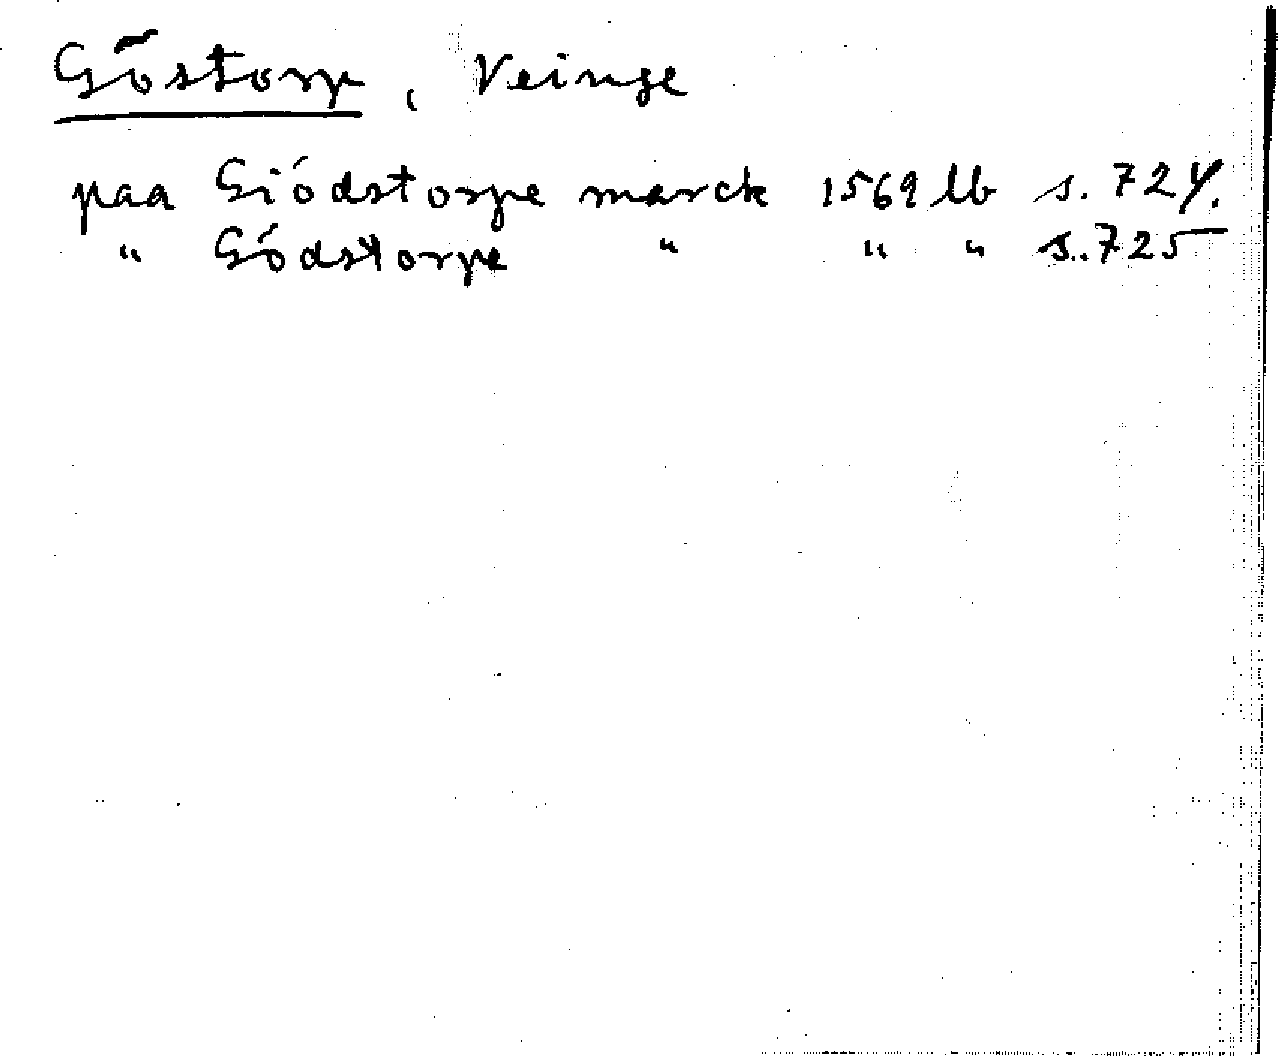 Göstorp, Veinge
paa Giódstorpe marck 1569 lb s. 724.
" Gódstorpe " " " s. 725